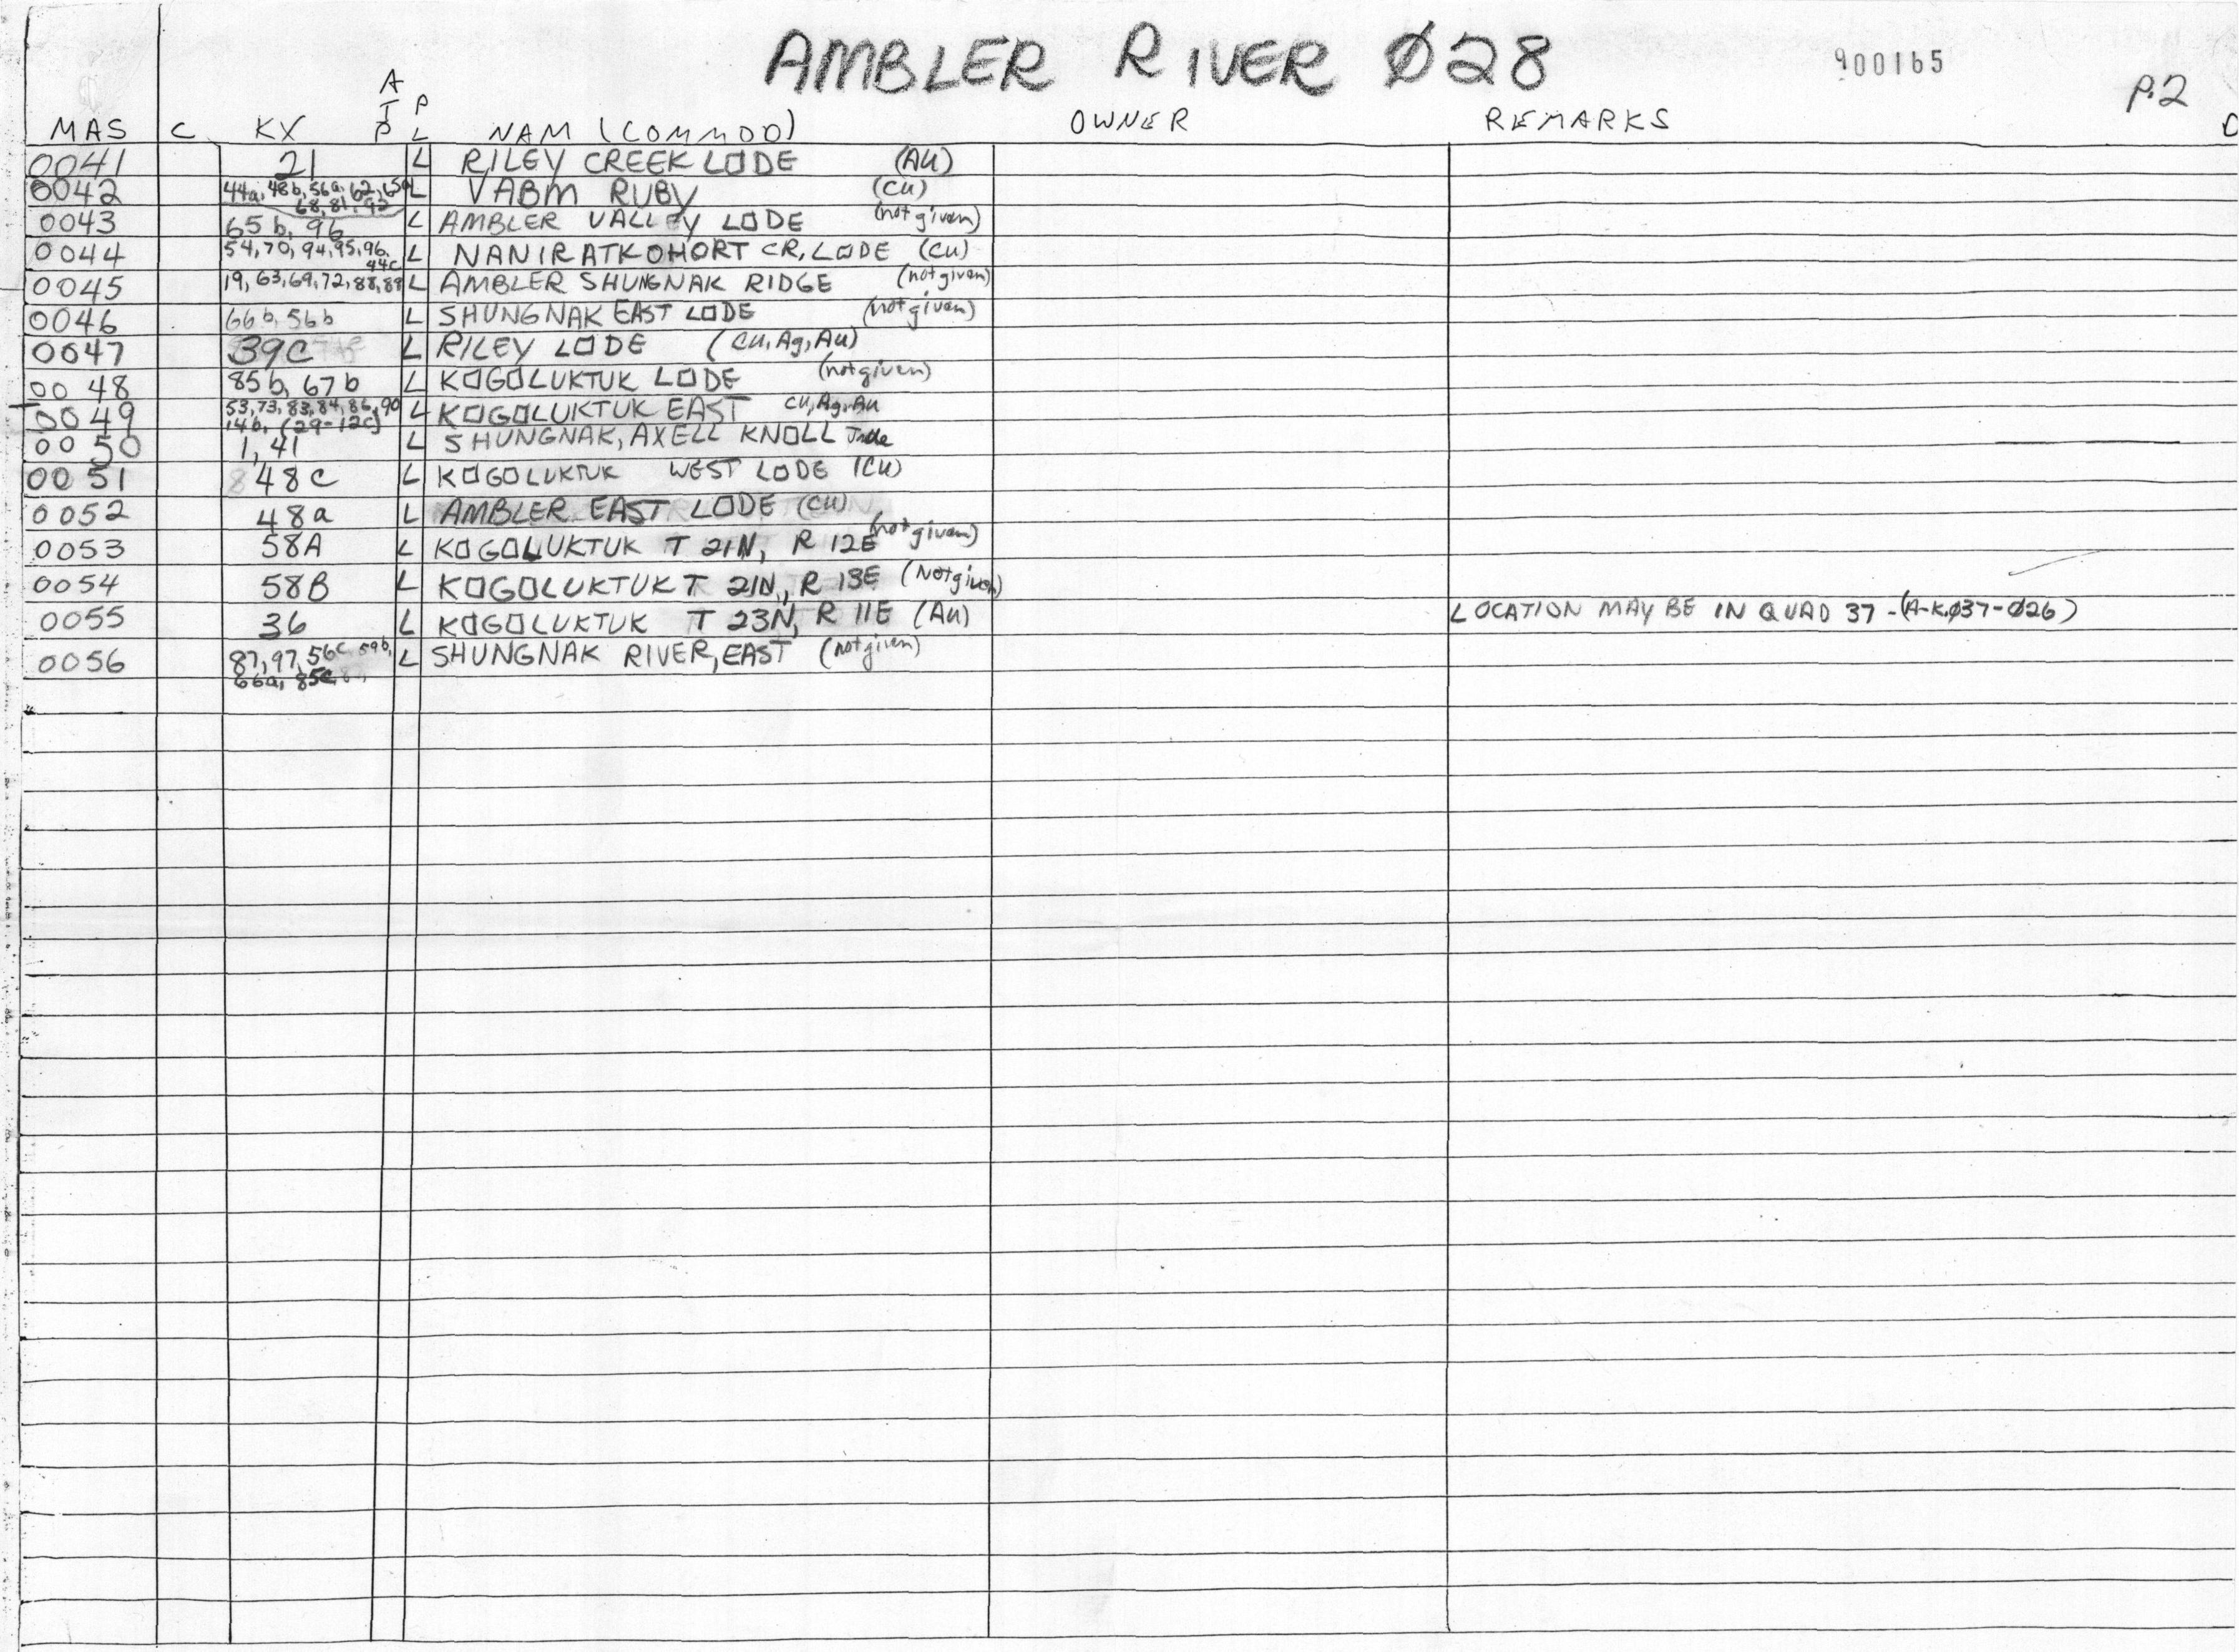 AMBLER RIVER Ø28
900165
P.2
MAS C KX ATP PL NAM (COMMOD) OWNER REMARKS
0041 21 L RILEY CREEK LODE (AU)
0042 44a, 48b, 56a, 62, 65a L VABM RUBY (CU)
68, 81, 92
0043 65b, 96 L AMBLER VALLEY LODE (not given)
0044 54, 70, 94, 95, 96, L NANIRATKOHORT CR, LODE (CU)
44c
0045 19, 63, 69, 72, 88, 89 L AMBLER SHUNGNAK RIDGE (not given)
0046 66b, 56b L SHUNGNAK EAST LODE (not given)
0047 39C L RILEY LODE (CU, Ag, AU)
0048 85b, 67b L KOGOLUKTUK LODE (not given)
0049 53, 73, 83, 84, 86, 90 L KOGOLUKTUK EAST CU, Ag, AU
14b, (29-12c)
0050 1, 41 L SHUNGNAK, AXELL KNOLL Jade
0051 48C L KOGOLUKTUK WEST LODE (CU)
0052 48a L AMBLER EAST LODE (CU)
0053 58A L KOGOLUKTUK T 21N, R 12E (not given)
0054 58B L KOGOLUKTUK T 21N, R 13E (Not given)
0055 36 L KOGOLUKTUK T 23N, R 11E (AU) LOCATION MAY BE IN QUAD 37 - (A-K.Ø37-Ø26)
0056 87, 97, 56C, 59b, L SHUNGNAK RIVER, EAST (not given)
66a, 85C